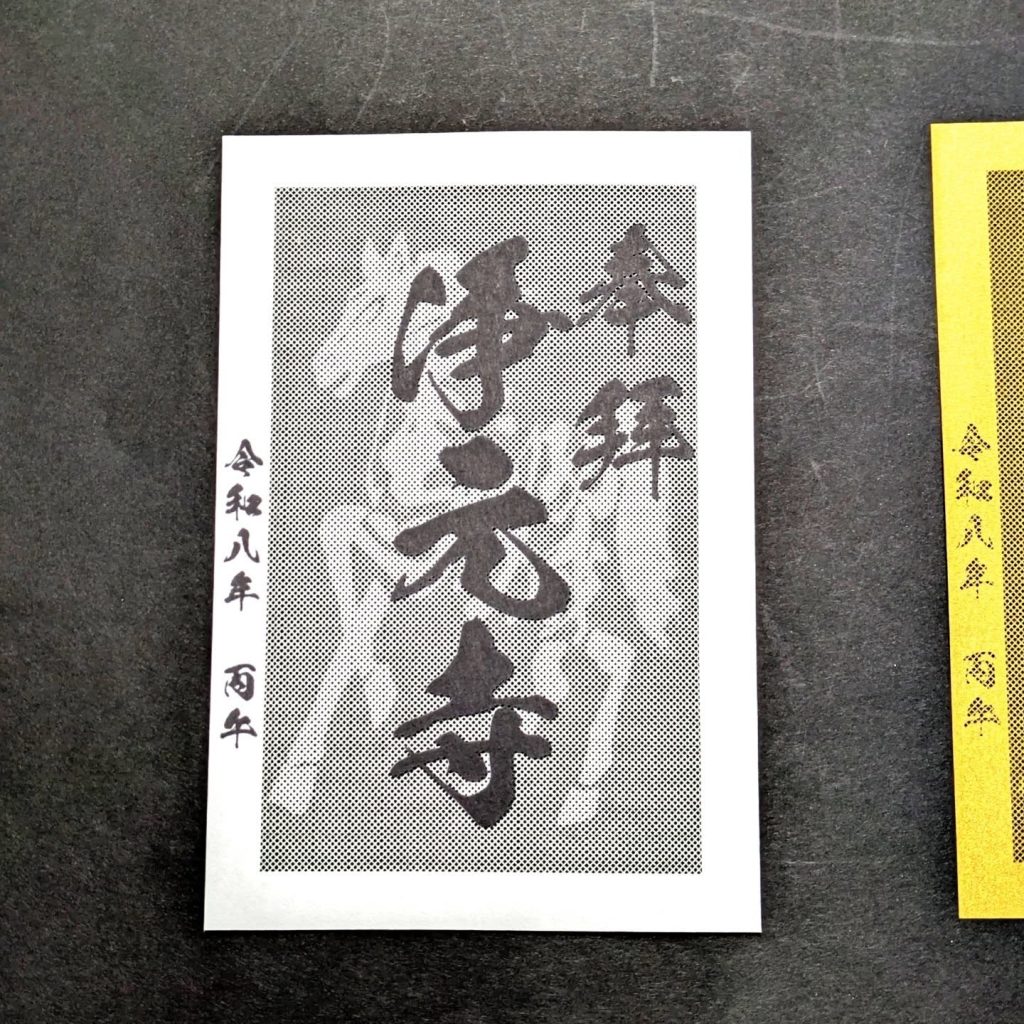 奉拝
浄元寺
令和八年 丙午
令和八年 丙午